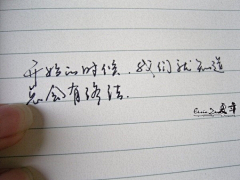 开始的时候，我们就知道
总会有终结.